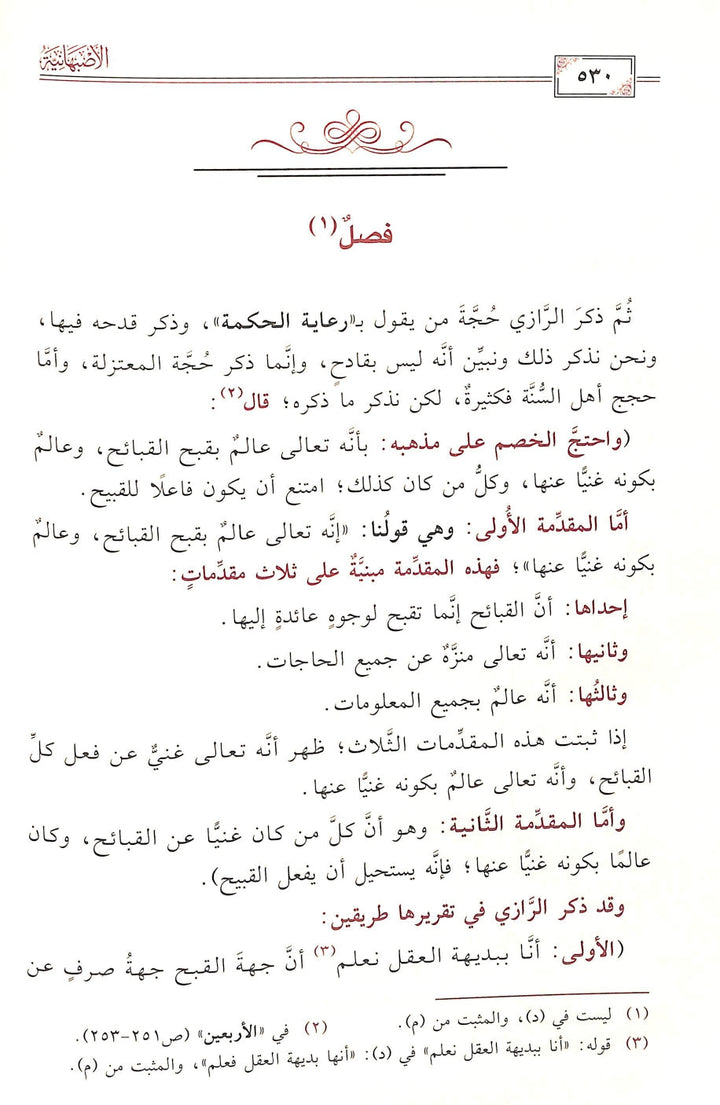 الأصبهانية
٥٣٠
فصلٌ(١)
ثُمَّ ذكرَ الرَّازي حُجَّةَ من يقول بـ«رعاية الحكمة»، وذكر قدحه فيها،
ونحن نذكر ذلك ونبيِّن أنَّه ليس بقادحٍ، وإنَّما ذكر حُجَّة المعتزلة، وأمَّا
حجج أهل السُّنَّة فكثيرةٌ، لكن نذكر ما ذكره؛ قال(٢):
(واحتجَّ الخصم على مذهبه: بأنَّه تعالى عالمٌ بقبح القبائح، وعالمٌ
بكونه غنيًّا عنها، وكلُّ من كان كذلك؛ امتنع أن يكون فاعلًا للقبيح.
أمَّا المقدِّمة الأُولى: وهي قولُنا: «إنَّه تعالى عالمٌ بقبح القبائح، وعالمٌ
بكونه غنيًّا عنها»؛ فهذه المقدِّمة مبنيَّةٌ على ثلاث مقدِّماتٍ:
إحداها: أنَّ القبائح إنَّما تقبح لوجوهٍ عائدةٍ إليها.
وثانيها: أنَّه تعالى منزَّهٌ عن جميع الحاجات.
وثالثُها: أنَّه عالمٌ بجميع المعلومات.
إذا ثبتت هذه المقدِّمات الثَّلاث؛ ظهر أنَّه تعالى غنيٌّ عن فعل كلِّ
القبائح، وأنَّه تعالى عالمٌ بكونه غنيًّا عنها.
وأمَّا المقدِّمة الثَّانية: وهو أنَّ كلَّ من كان غنيًّا عن القبائح، وكان
عالمًا بكونه غنيًّا عنها؛ فإنَّه يستحيل أن يفعل القبيح).
وقد ذكر الرَّازي في تقريرها طريقين:
(الأولى: أنَّا ببديهة العقل نعلم(٣) أنَّ جهةَ القبح جهةُ صرفٍ عن
(١) ليست في (د)، والمثبت من (م). (٢) في «الأربعين» (ص٢٥١-٢٥٣).
(٣) قوله: «أنا ببديهة العقل نعلم» في (د): «أنها بديهة العقل فعلم»، والمثبت من (م).